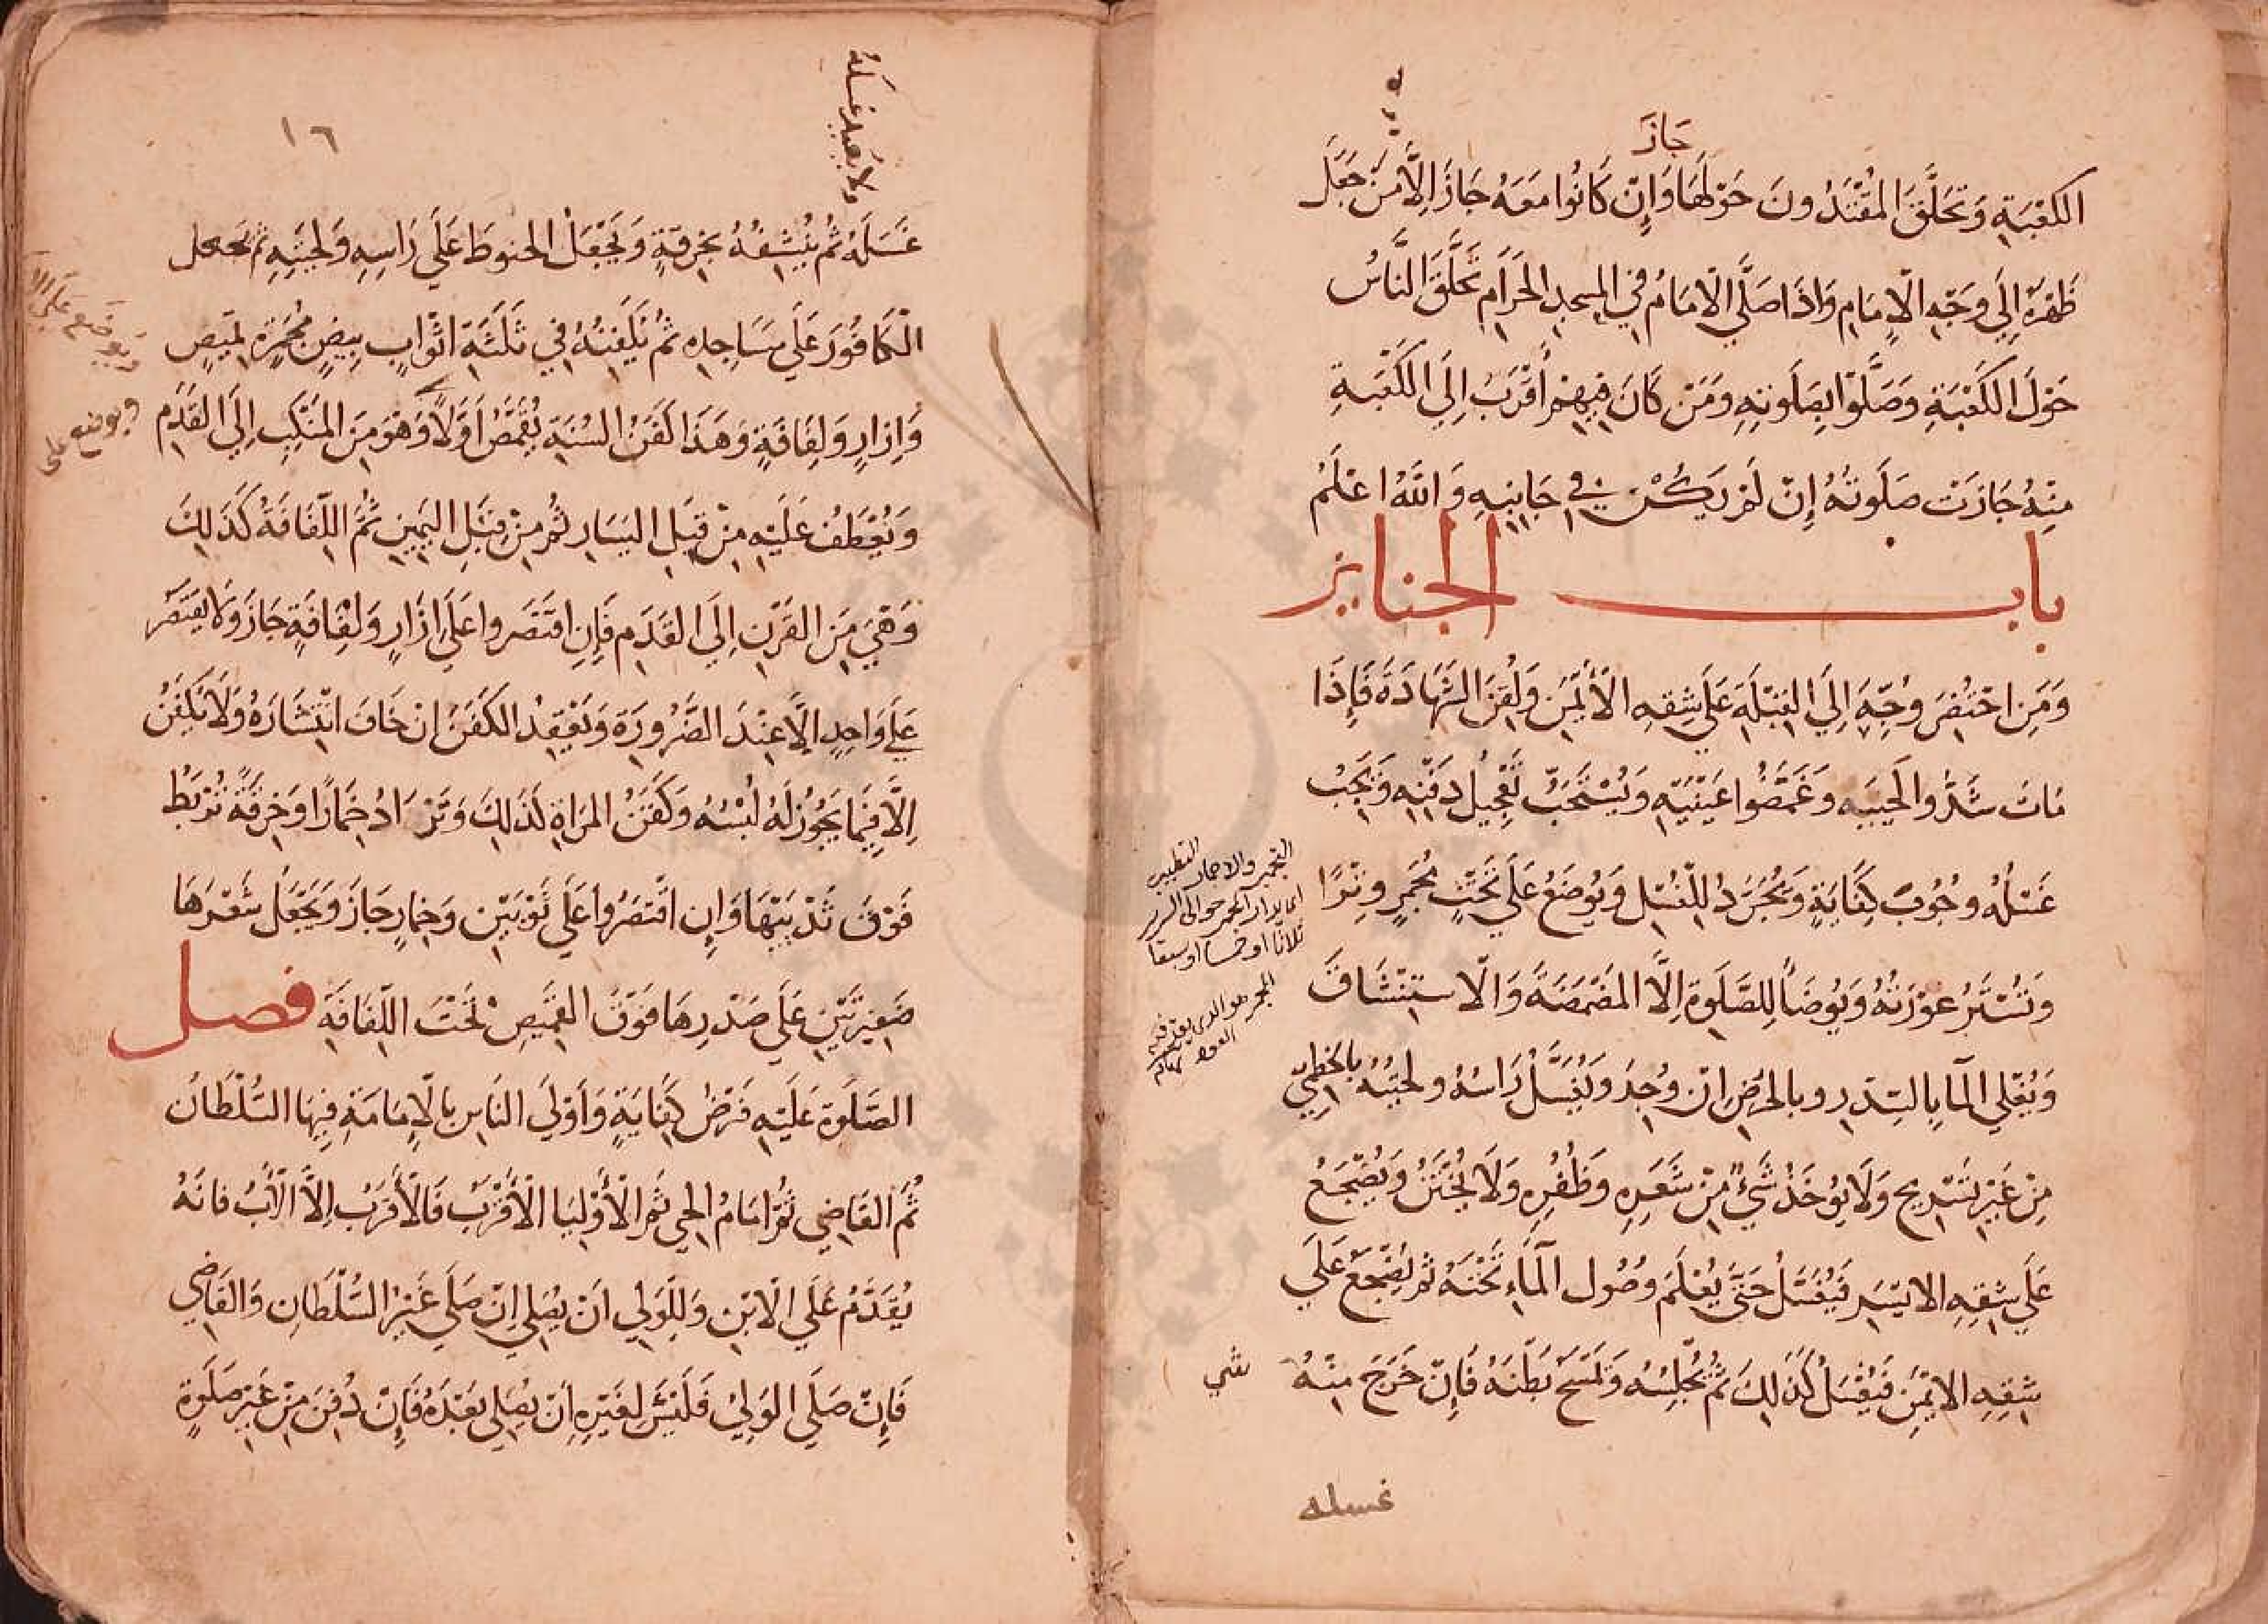 جَازَ
الكَعْبَةِ وَتَحَلَّقَ المُقْتَدُونَ حَوْلَهَا وَاِنْ كَانُوا مَعَهُ جَازَ اِلَّا مَنْ جَعَلَ
ظَهْرَهُ اِلَى وَجْهِ الْاِمَامِ وَاذَا صَلَّى الْاِمَامُ فِي المسجِدِ الحَرَامِ تَحَلَّقَ النَّاسُ
حَوْلَ الكَعْبَةِ وَصَلَّوْا بِصَلَوتِهِ وَمَنْ كَانَ مِنْهُمْ أَقْرَبَ اِلَى الكَعْبَةِ
مِنْهُ جَازَتْ صَلَوتُهُ اِنْ لَمْ يَكُنْ فِي جَانِبِهِ وَاللَّهُ اعْلَمُ
باب الجنايز
وَمَنِ احْتُضِرَ وُجِّهَ اِلَى القِبْلَةِ عَلَى شِقِهِ الْأَيْمَنِ وَلُقِّنَ الشَّهَادَةَ فَاِذَا
مَاتَ شَدُّوا لَحْيَيْهِ وَغَمَّضُوا عَيْنَيْهِ وَيُسْتَحَبُّ تَعْجِيلُ دَفْنِهِ وَيَجِبُ
غَسْلُهُ وُجُوبَ كِفَايَةٍ وَيُجَرَّدُ لِلْغُسْلِ وَيُوضَعُ عَلَى تَخْتٍ مُجَمَّرٍ وِتْرًا
وَتُسْتَرُ عَوْرَتُهُ وَيُوضَأُ لِلصَّلَوةِ اِلَّا المَضْمَضَةَ وَالْاستِنْشَاقَ
وَيُغْلَى الْمَآ بِالسِّدْرِ وبالحُرْضِ اِنْ وُجِدَ وَيُغْسَلُ رَاسُهُ ولحيَتُهُ بالخَطْمِيّ
مِنْ غَيْرِ تَسْرِيحٍ وَلَا يُوْخَذُ شَيْءٌ مِنْ شَعَرِهِ وَظُفُرِهِ وَلَا يُخْتَنُ وَيُضْجَعُ
عَلَى شِقِهِ الايْسَرِ فَيُغْسَلُ حَتَّى يُعْلَمَ وُصُولُ الْمَآءِ تَحْتَهُ ثُمَّ يُضْجَعُ عَلَى
شِقِهِ الايْمَنِ فَيُغْسَلُ كَذَلِكَ ثُمَّ يُجْلِسُهُ وَيَمْسَحُ بَطْنَهُ فَاِنْ خَرَجَ مِنْهُ
شي
التجمير والاجمار التطييب
انما يدار المجمر حوالي السرير
ثلاثا او خمسا او سبعا
المجمر هو الذي يوقد فيه
العود
غسله
١٦
ولا يعيد غسله
غَسَلَهُ ثُمَّ يُنَشِفُهُ بِخِرْقَةٍ وَيَجْعَلُ الحنوطَ عَلَى رَاسِهِ وَلحيَتِهِ ثم يجعل
الْكَافُورَ عَلَى مَسَاجِدِهِ ثُمَّ يُكَفِّنُهُ فِي ثَلَثَةِ اثْوَابٍ بِيضٍ مُجَمَّرَةٍ قَمِيصٍ
وَاِزَارٍ وَلِفَافَةٍ وَهَذَا كَفَنُ السُنَةِ يُقَمَّصُ اَوَّلًا وَهْوَ مِنَ المَنْكِبِ اِلَى القَدَمِ
ويوضع على
وَيُعْطَفُ عَلَيْهِ مِنْ قِبَلِ اليَسَارِ ثُمَّ مِنْ قِبَلِ اليَمِينِ ثُمَّ اللّفَافَةُ كَذَلِكَ
وَهْيَ مِنَ القَرْنِ اِلَى القَدَمِ فَاِنِ اقْتَصَروا عَلَى اِزَارٍ وَلِفَافَةٍ جَازَ وَلَا يُقْتَصَرُ
عَلَى وَاحِدٍ اِلَّا عِنْدَ الضَّرُورَةِ وَيُعْقَدُ الكَفَنُ اِنْ خَافَ انْتِشَارَهُ وَلَا يُكَفَّنُ
اِلَّا فِيمَا يَجُوزُ لَهُ لُبْسُهُ وَكَفَنُ المَرَاةِ كَذَلِكَ وَتُزَادُ خِمَارًا وَخِرقَةً تُرْبَطُ
فَوْقَ ثَدْيَيْهَا وَاِنِ اقْتَصَرُوا عَلَى ثَوْبَيْنِ وَخِمَارٍ جَازَ وَيُجْعَلُ شَعْرُهَا
ضَفِيرَتَيْنِ عَلَى صَدْرِهَا فَوْقَ القَمِيصِ تَحْتَ اللّفَافَةِ فصل
الصَّلَوةُ عَلَيْهِ فَرْضُ كِفَايَةٍ وَأَوْلَى النَاسِ بِالْاِمَامَةِ فِيهَا السُّلْطَانُ
ثُمَّ القَاضِي ثُمَّ اِمَامُ الحَي ثُمَّ الْأَوْلِيَا الْأَقْرَبُ فَالْأَقْرَبُ اِلَّا الْأَبُ فانَهُ
يُقَدَّمُ عَلَى الْابْنِ وَلِلْوَلِي اَنْ يُصَلِيَ اِنْ صَلَّى غَيْرُ السُّلْطَانِ وَالقَاضِي
فَاِنْ صَلَّى الوَلِيُ فَلَيْسَ لِغَيْرِهِ اَنْ يُصَلِّي بَعْدَهُ فَاِنْ دُفِنَ مِنْ غَيْرِ صَلَوةٍ